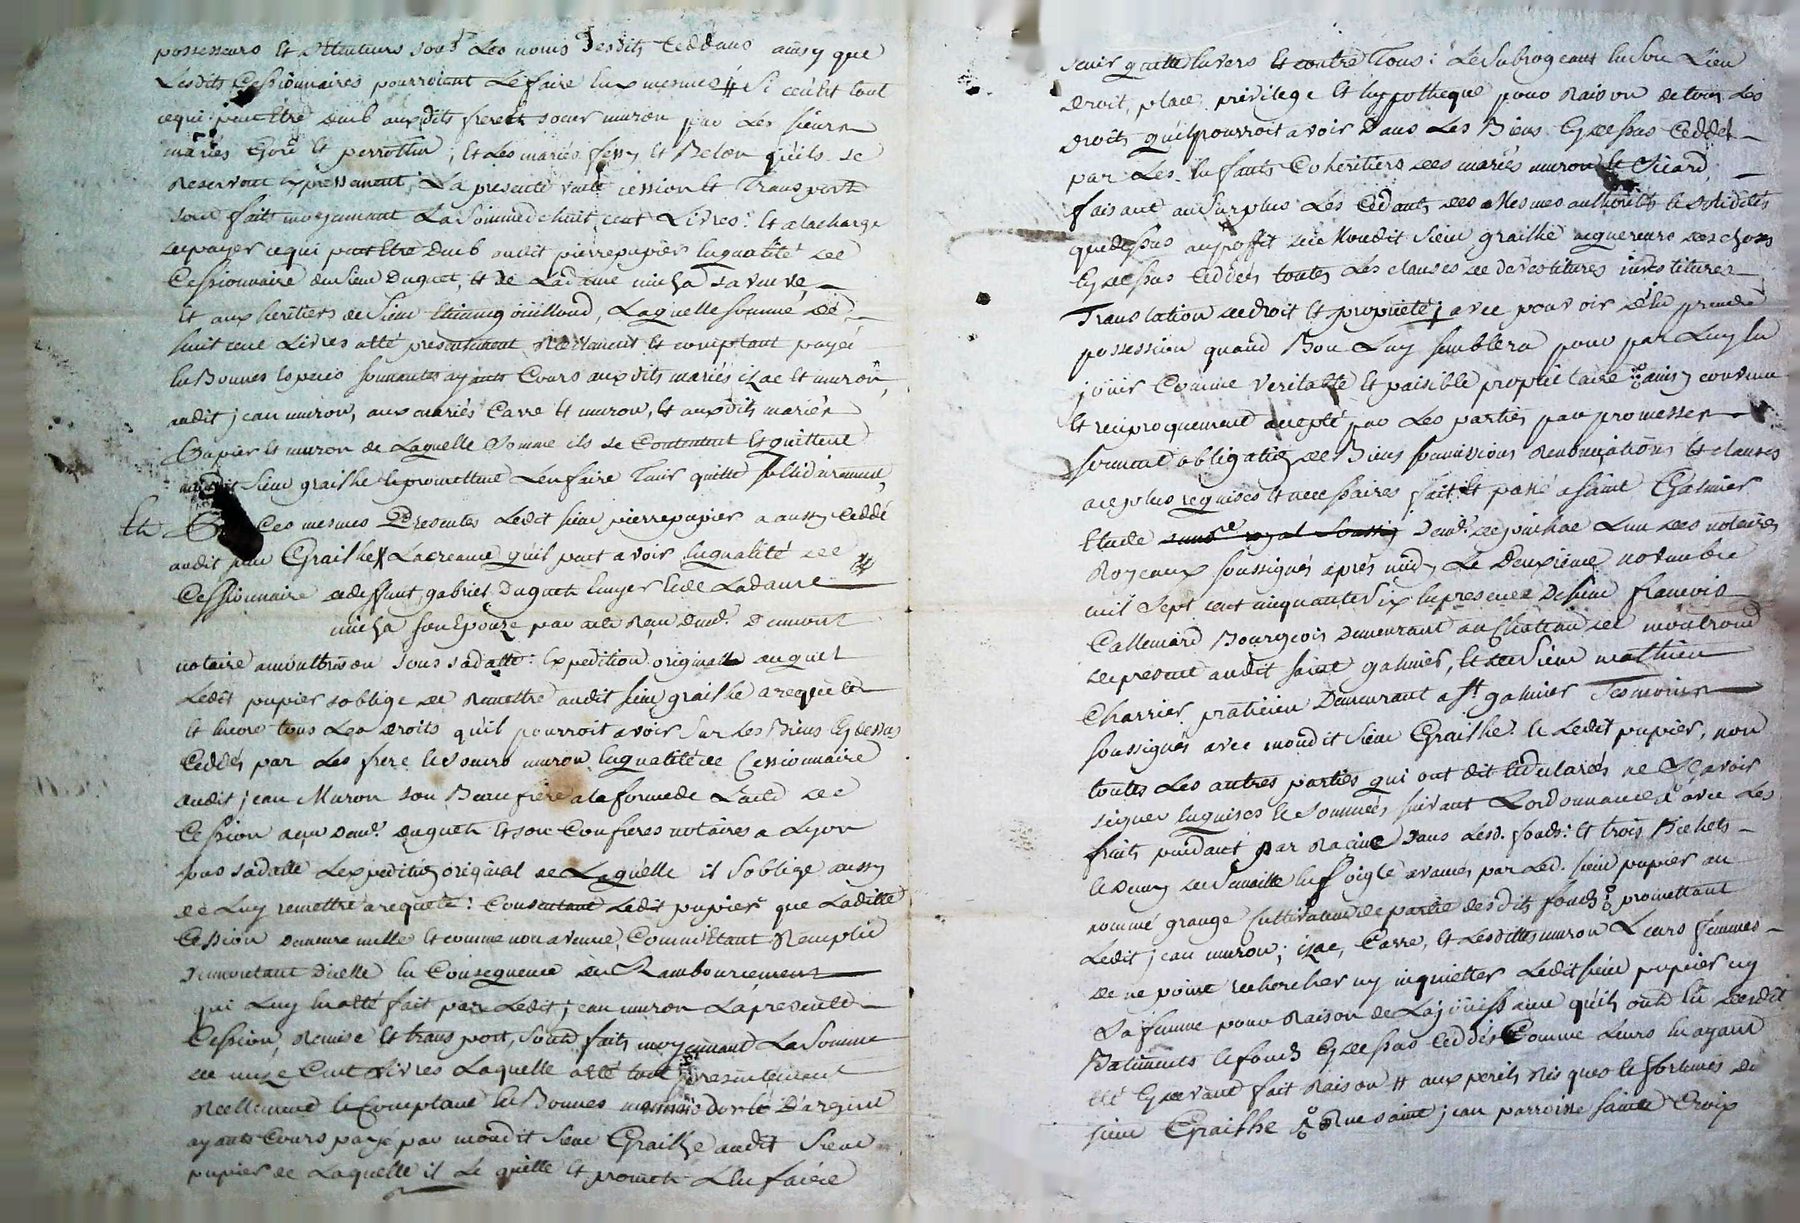 possesseurs et detenteurs sous les noms desdits Ceddans ainsy que
Lesdits Cessionnaires pourroient Le faire Eux mesmes # Si ceu est tout
cequi peut Etre dub auxdits frere et soeur muron par Les sieurs
mariés et perrottin, et Les mariés et Belon qu'ils se
Reservent Expressement; La presente vente cession et Transport
sont faits moyennant La Somme de huit cent Livres: et a lacharge
depayer cequi peut Etre dub audit pierre pupier Enqualité de
Cessionnaire du sieur Duguet, et de Ladame micha sa veuve,
Et aux heritiers de sieur Laquelle somme de
huit cent Livres a Eté presentement Reellement et comptant payée
En Bonnes Especes sonnantes ayants Cours auxdits mariés izac et muron,
audit jean muron, aux mariés Carre et muron, et auxdits mariés
pupier et muron de Laquelle Somme ils se Contentent et quittent
mondit Sieur grailhe et promettent L'en faire Tenir quitte solidairement,
Et Ces mesmes Presentes Ledit sieur pierre pupier a aussy Ceddé
audit sieur Grailhe Lacreance qu'il peut avoir Enqualité de
Cessionnaire dedeffunt gabriel Duguet Ecuyer et de Ladame
micha son Epouze par acte Reçu
notaire amontbrison sous sadatte: Expedition originalle auquel
Ledit pupier soblige de Remettre audit sieur grailhe a requette
et Encore tous Les droits qu'il pourroit avoir Sur Les Biens Cy dessus
Ceddés par Les frere et soeurs muron Enqualité de Cessionnaire
dudit jean Muron son Beaufrere a la forme de L'acte de
Cession reçu duguet et son Confreres notaires a Lyon
sous sadatte L'expedition original de Laquelle il S'oblige aussy
de Luy remettre a requette: Consentant Ledit pupier que Laditte
Cession demeure nulle et comme non avenue, Comm'Etant Remplie
dumontant d'icelle En Consequence du Rambourcement
qui Luy En a Eté fait par Ledit jean muron Lapresente
Cession, Remise et transport, Sont faits moyennant La Somme
de Cent Livres Laquelle a Eté tout presentement
Reellement et Comptant En Bonnes d'or et D'argent
ayants Cours payé par mondit Sieur Grailhe audit Sieur
pupier de Laquelle il Le quitte et promet L'en faire
Tenir quitte Envers et contre Tous: Le Subrogeant En Son Lieu
Droit, place, privilege et hypotheque pour Raison de tous Les
droits qu'il pourroit avoir Dans Les Biens Cy dessus Ceddés
par Les Enfants Coheritiers des mariés muron et Sicard,
faisant au Surplus Les Cedants des Mesmes authorités et solidités
quedessus au proffit de Mondit Sieur grailhe acquereurs des choses
Cy dessus Ceddées toutes Les clauses de devestitures investitures
Translation de droit et propriété; avec pouvoir d'En prendre
possession quand Bon Luy semblera pour par Luy En
joüir Comme Veritable et paisible propriétaire ainsy convenu
et reciproquement accepté par Les parties par promesses
serment obligation de Biens soumissions Renonciations et clauses
acesplus requises et necessaires fait et passé a saint Galmier
Etude L'un des notaires
Royeaux soussignés après midy Le Deuxieme novembre
mil Sept cent cinquante six En presence De sieur francois
Callemard Bourgeois Demeurant au Chateau de montrond
depresent audit saint galmier, et de Sieur mathieu
Charrier praticien Demeurant a St galmier Temoins
soussignés avec mondit sieur Grailhe et Ledit pupier, non
touttes Les autres parties qui ont dit et declaré ne Sçavoir
signer Enquises et Sommées, suivant L'ordonnance avec Les
fruits pendant par Racine dans Lesd. fonds: et trois Bichets
et Demy de Semaille En Soigle avancés par Led. sieur pupier au
nommé grange Cultivateur de partie desdits fonds promettant
Ledit jean muron; izac, Carre, et Lesdittes muron Leurs femmes
de ne point rechercher ny inquietter Ledit sieur pupier ny
Sa femme pour Raison de La joüissance qu'ils ont Eü desdits
Batiments et fonds Cy dessus Ceddés Comme Leurs En ayant
Eté Cy devant fait Raison # aux perils Risques et fortunes du
sieur Grailhe Rue saint jean parroisse sainte Croix